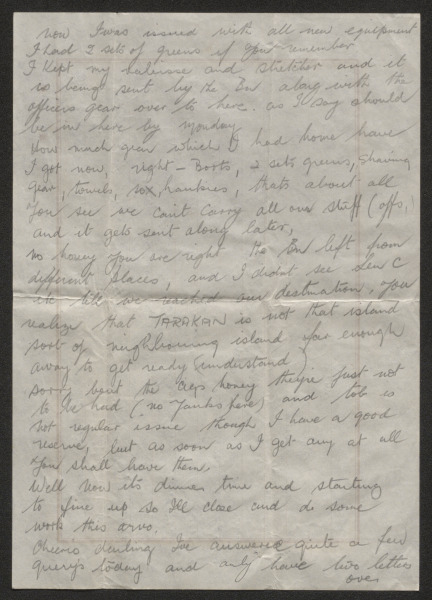 now I was issued with all new equipment
I had 2 sets of greens if you remember
I kept my valuisse and stretcher and it
is being sent by the Bn along with the
officers gear over to here. as I say should
be in here by monday
How much gear which I had home have
I got now, right - Boots, 2 sets greens, shaving
gear, towels, sox, hankies, thats about all
You see we can't carry all our stuff (offs,)
and it gets sent along later,
no honey you are right the Bn left from
different places, and I didn't see Len C
etc till we reached our destination. You
realize that TARAKAN is not that island
sort of neighbouring island far enough
away to get ready (understand)
Sorry bout the Jap money they're just not
to be had (no Yanks here) and tob is
not regular issue though I have a good
reserve, but as soon as I get any at all
You shall have them.
Well now its dinner time and starting
to fine up so I'll close and do some
work this arvo.
Cheerio darling I've answered quite a few
querys today and only have two letters
over